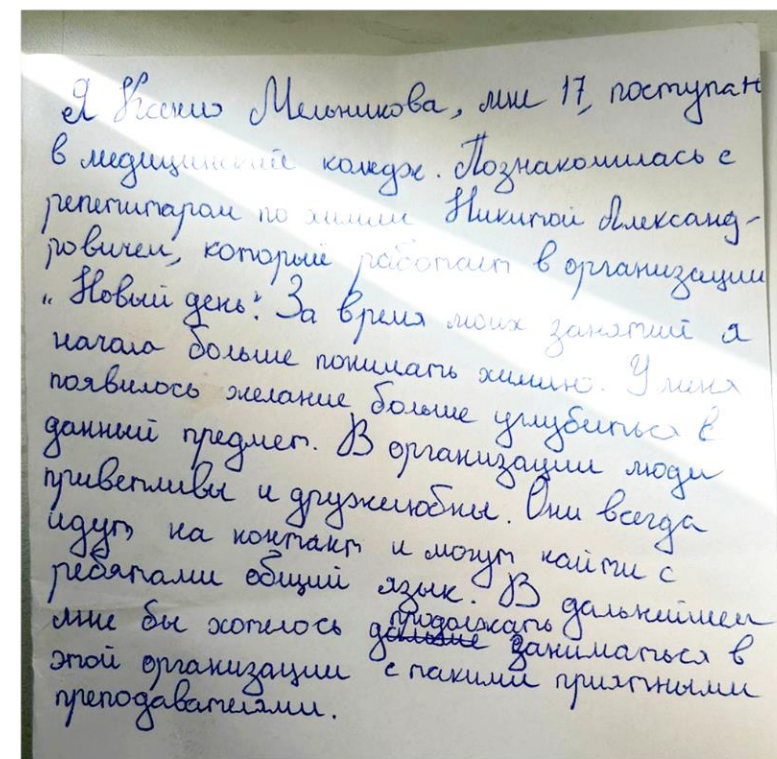 Я Ксения Мельникова, мне 17, поступаю
в медицинский коледж. Познакомилась с
репетитаром по химии Никитой Александ-
ровичем, который работает в организации
"Новый день". За время моих занятий я
начала больше понимать химию. У меня
появилось желание больше углубиться в
данный предмет. В организации люди
приветливы и дружелюбны. Они всегда
идут на контакт и могут найти с
ребятами общий язык. В дальнейшем
мне бы хотелось продолжать заниматься в
этой организации с такими приятными
преподавателями.